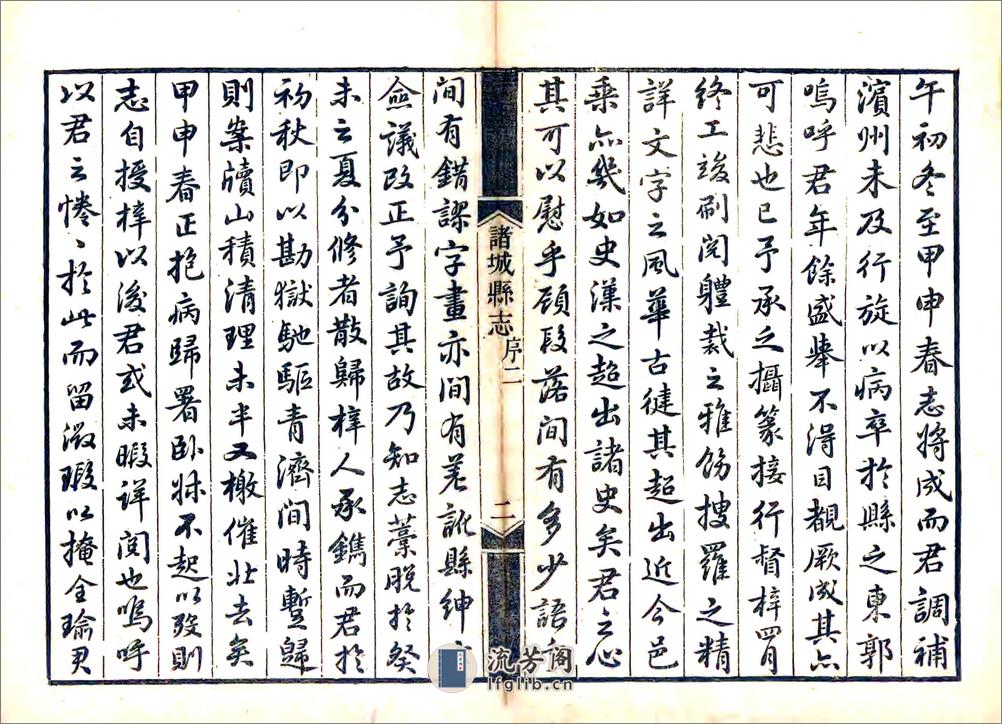 午初冬至甲申春志將成而君調補
濱州未及行旋以病卒於縣之東郭
嗚呼君年餘盛舉不得目覩厥成其亦
可悲也已予承乏攝篆接行督梓四月
終工竣刷閱體裁之雅飭搜羅之精
詳文字之風華古健其超出近今邑
乘亦幾如史漢之超出諸史矣君之心
其可以慰乎顧段落間有多少語句
諸城縣志
序二
二
間有錯謬字畫亦間有差訛縣紳
僉議改正予詢其故乃知志藁脫於癸
未之夏分修者散歸梓人承鐫而君於
初秋即以勘獄馳驅青濟間時暫歸
則案牘山積清理未半又檄催北去矣
甲申春正抱病歸署卧牀不起以歿則
志自授梓以後君或未暇詳閱也嗚呼
以君之惓〻於此而留微瑕以掩全瑜君
流芳閣
lfglib.cn